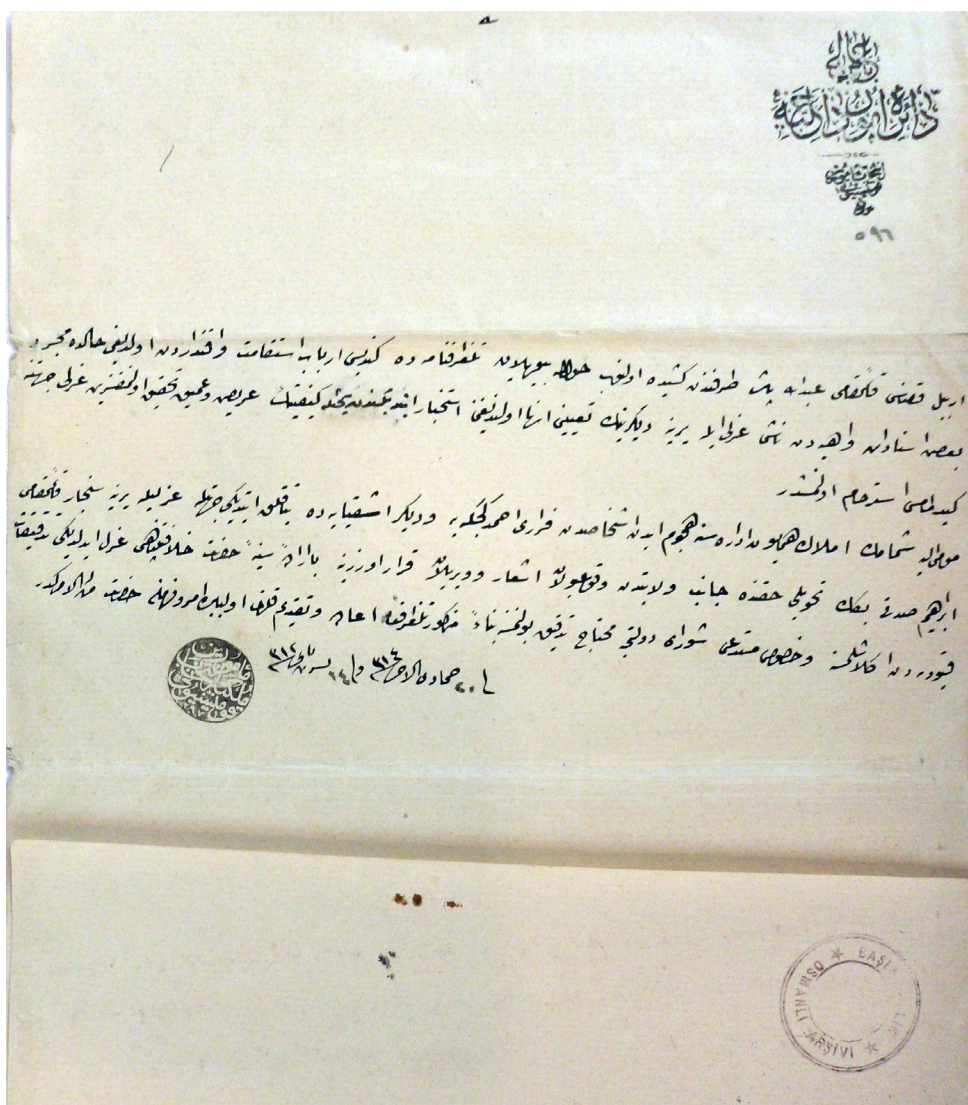 باب عالی
دائره امور داخلیه
انتخاب مأمورین
قومیسیونی
عدد
٥٩٦
اربیل قضاسی قائممقامی عبدالله پاشا طرفندن کشیده اولنوب حواله بیوریلان تلغرافنامه ده کندیسی ارباب استقامت و اقتداردن اولدیغی حالده مجرد
بعض اسنادات واهیه دن ناشی عزلی ایله یرینه دیگرینک تعیینی انها اولندیغی استخبار ایتدیگندن بحثله کیفیتک عریض و عمیق تحقیق اولنمقسزین عزلی جهتنه
گیدلمامسی استرحام اولنمشدر
مومی الیه شمامک املاک همایون اداره سنه هجوم ایدن اشخاصدن فراری احمد و دیگر اشقیایه ده یتاقلق ایتدیگی جهتله عزلیله یرینه سنجار قائممقامی
ابراهیم صدقی بک تحویلی حقنده جانب ولایتدن وقوعبولان اشعار و ویریلان قرار اوزرینه باارادۀ سنیۀ حضرت خلافتپناهی عزل ایدلدیگی تدقیقات
قیودیه دن اکلاشلمش و خصوص مستدعی شورای دولتجه محتاج تدقیق بولنمش بناءً مذکور تلغرافنامه اعاده و تقدیم قلنمش اولمغله امر و فرمان حضرت من له الامرکدر
فی ٢٠ جمادی الاخر ٣١٤ و فی ١٤ تشرین ثانی ٣١٢
BAŞ
OSMANLI ARŞİVİ